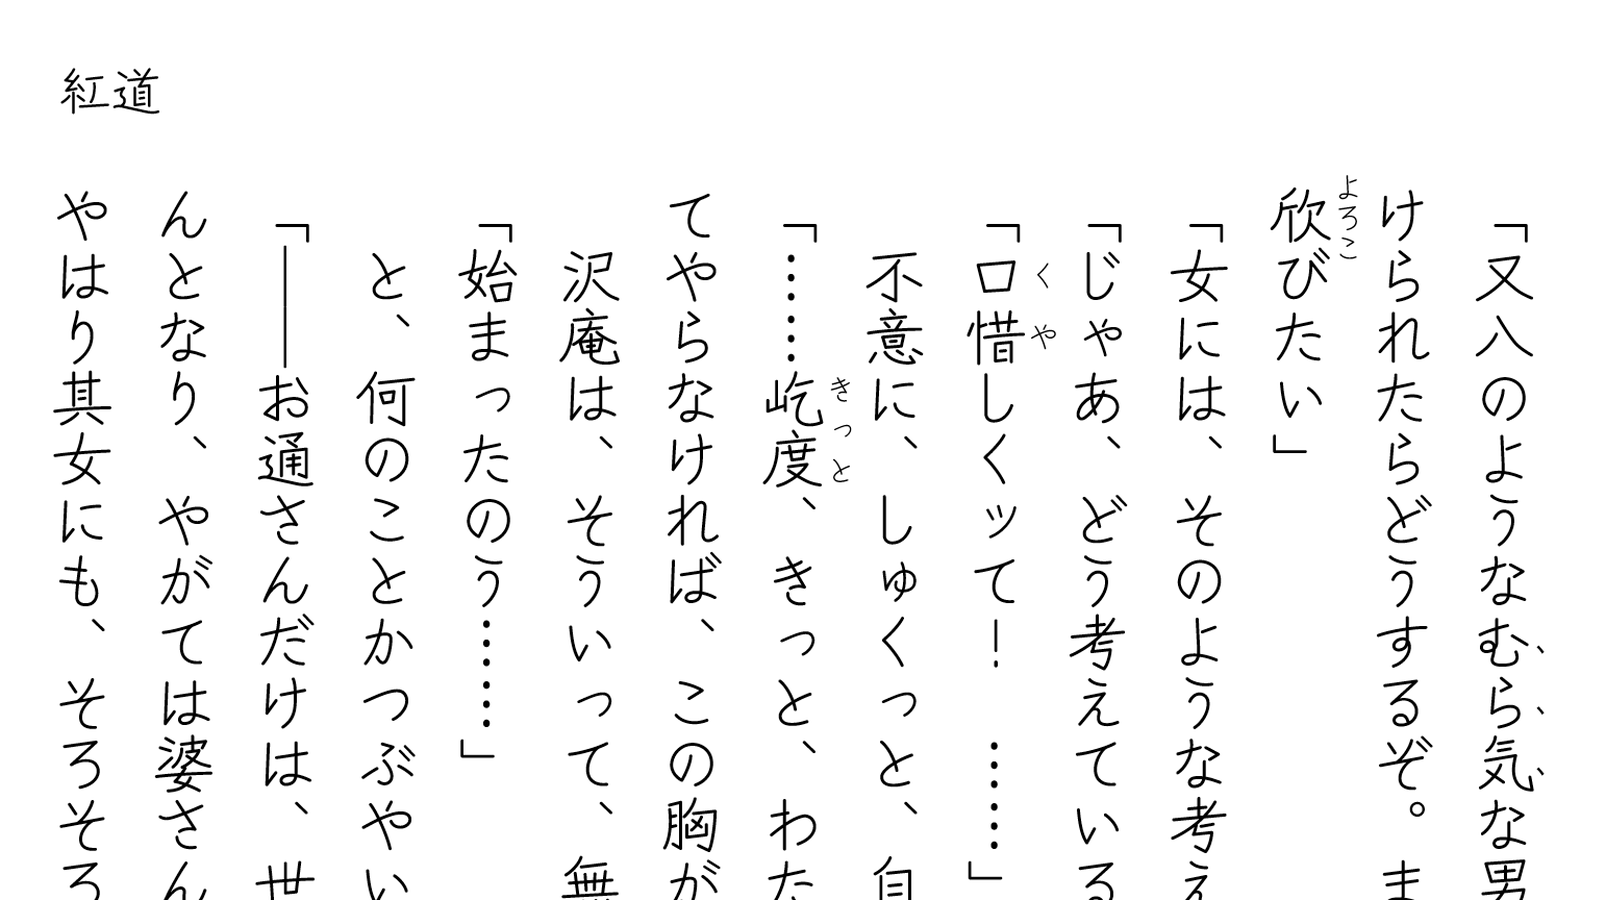 紅道
「又八のようなむら気な男
けられたらどうするぞ。ま
欣びたい」
「女には、そのような考え
「じゃあ、どう考えている
「口惜しくッて！　……」
不意に、しゅくっと、自
「……屹度、きっと、わた
てやらなければ、この胸が
沢庵は、そういって、無
「始まったのう……」
と、何のことかつぶやい
「――お通さんだけは、世
んとなり、やがては婆さん
やはり其女にも、そろそろ